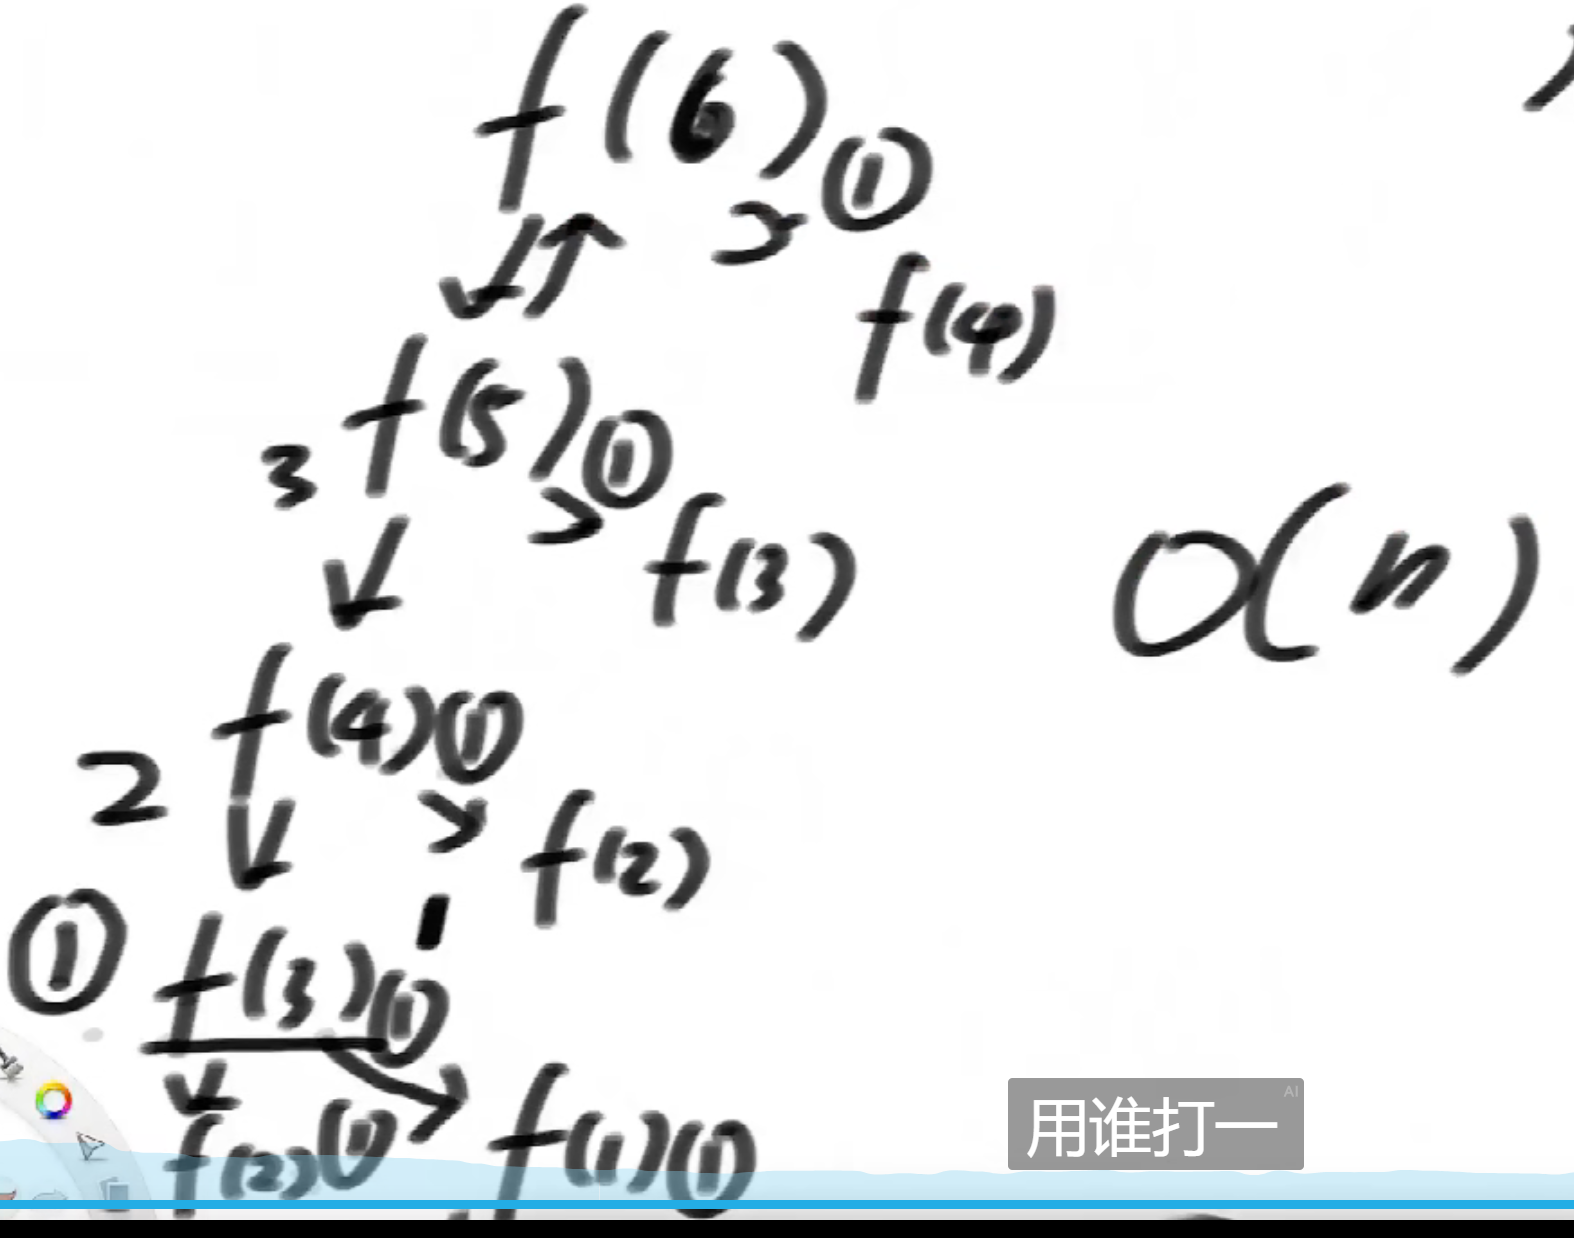 f(6)①
f(4)
3 f(5)①
f(3)
O(n)
2 f(4)①
f(2)
① f(3)①
f(2)① f(1)①
AI
用谁打一